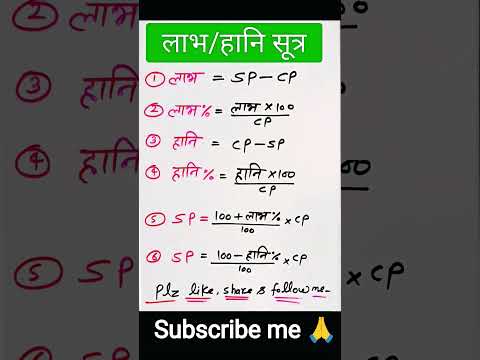 लाभ/हानि सूत्र
① लाभ = SP - CP
② लाभ% = लाभ × 100 / CP
③ हानि = CP - SP
④ हानि% = हानि × 100 / CP
⑤ SP = 100 + लाभ% / 100 × CP
⑥ SP = 100 - हानि% / 100 × CP
Plz like, share & follow me.
Subscribe me 🙏